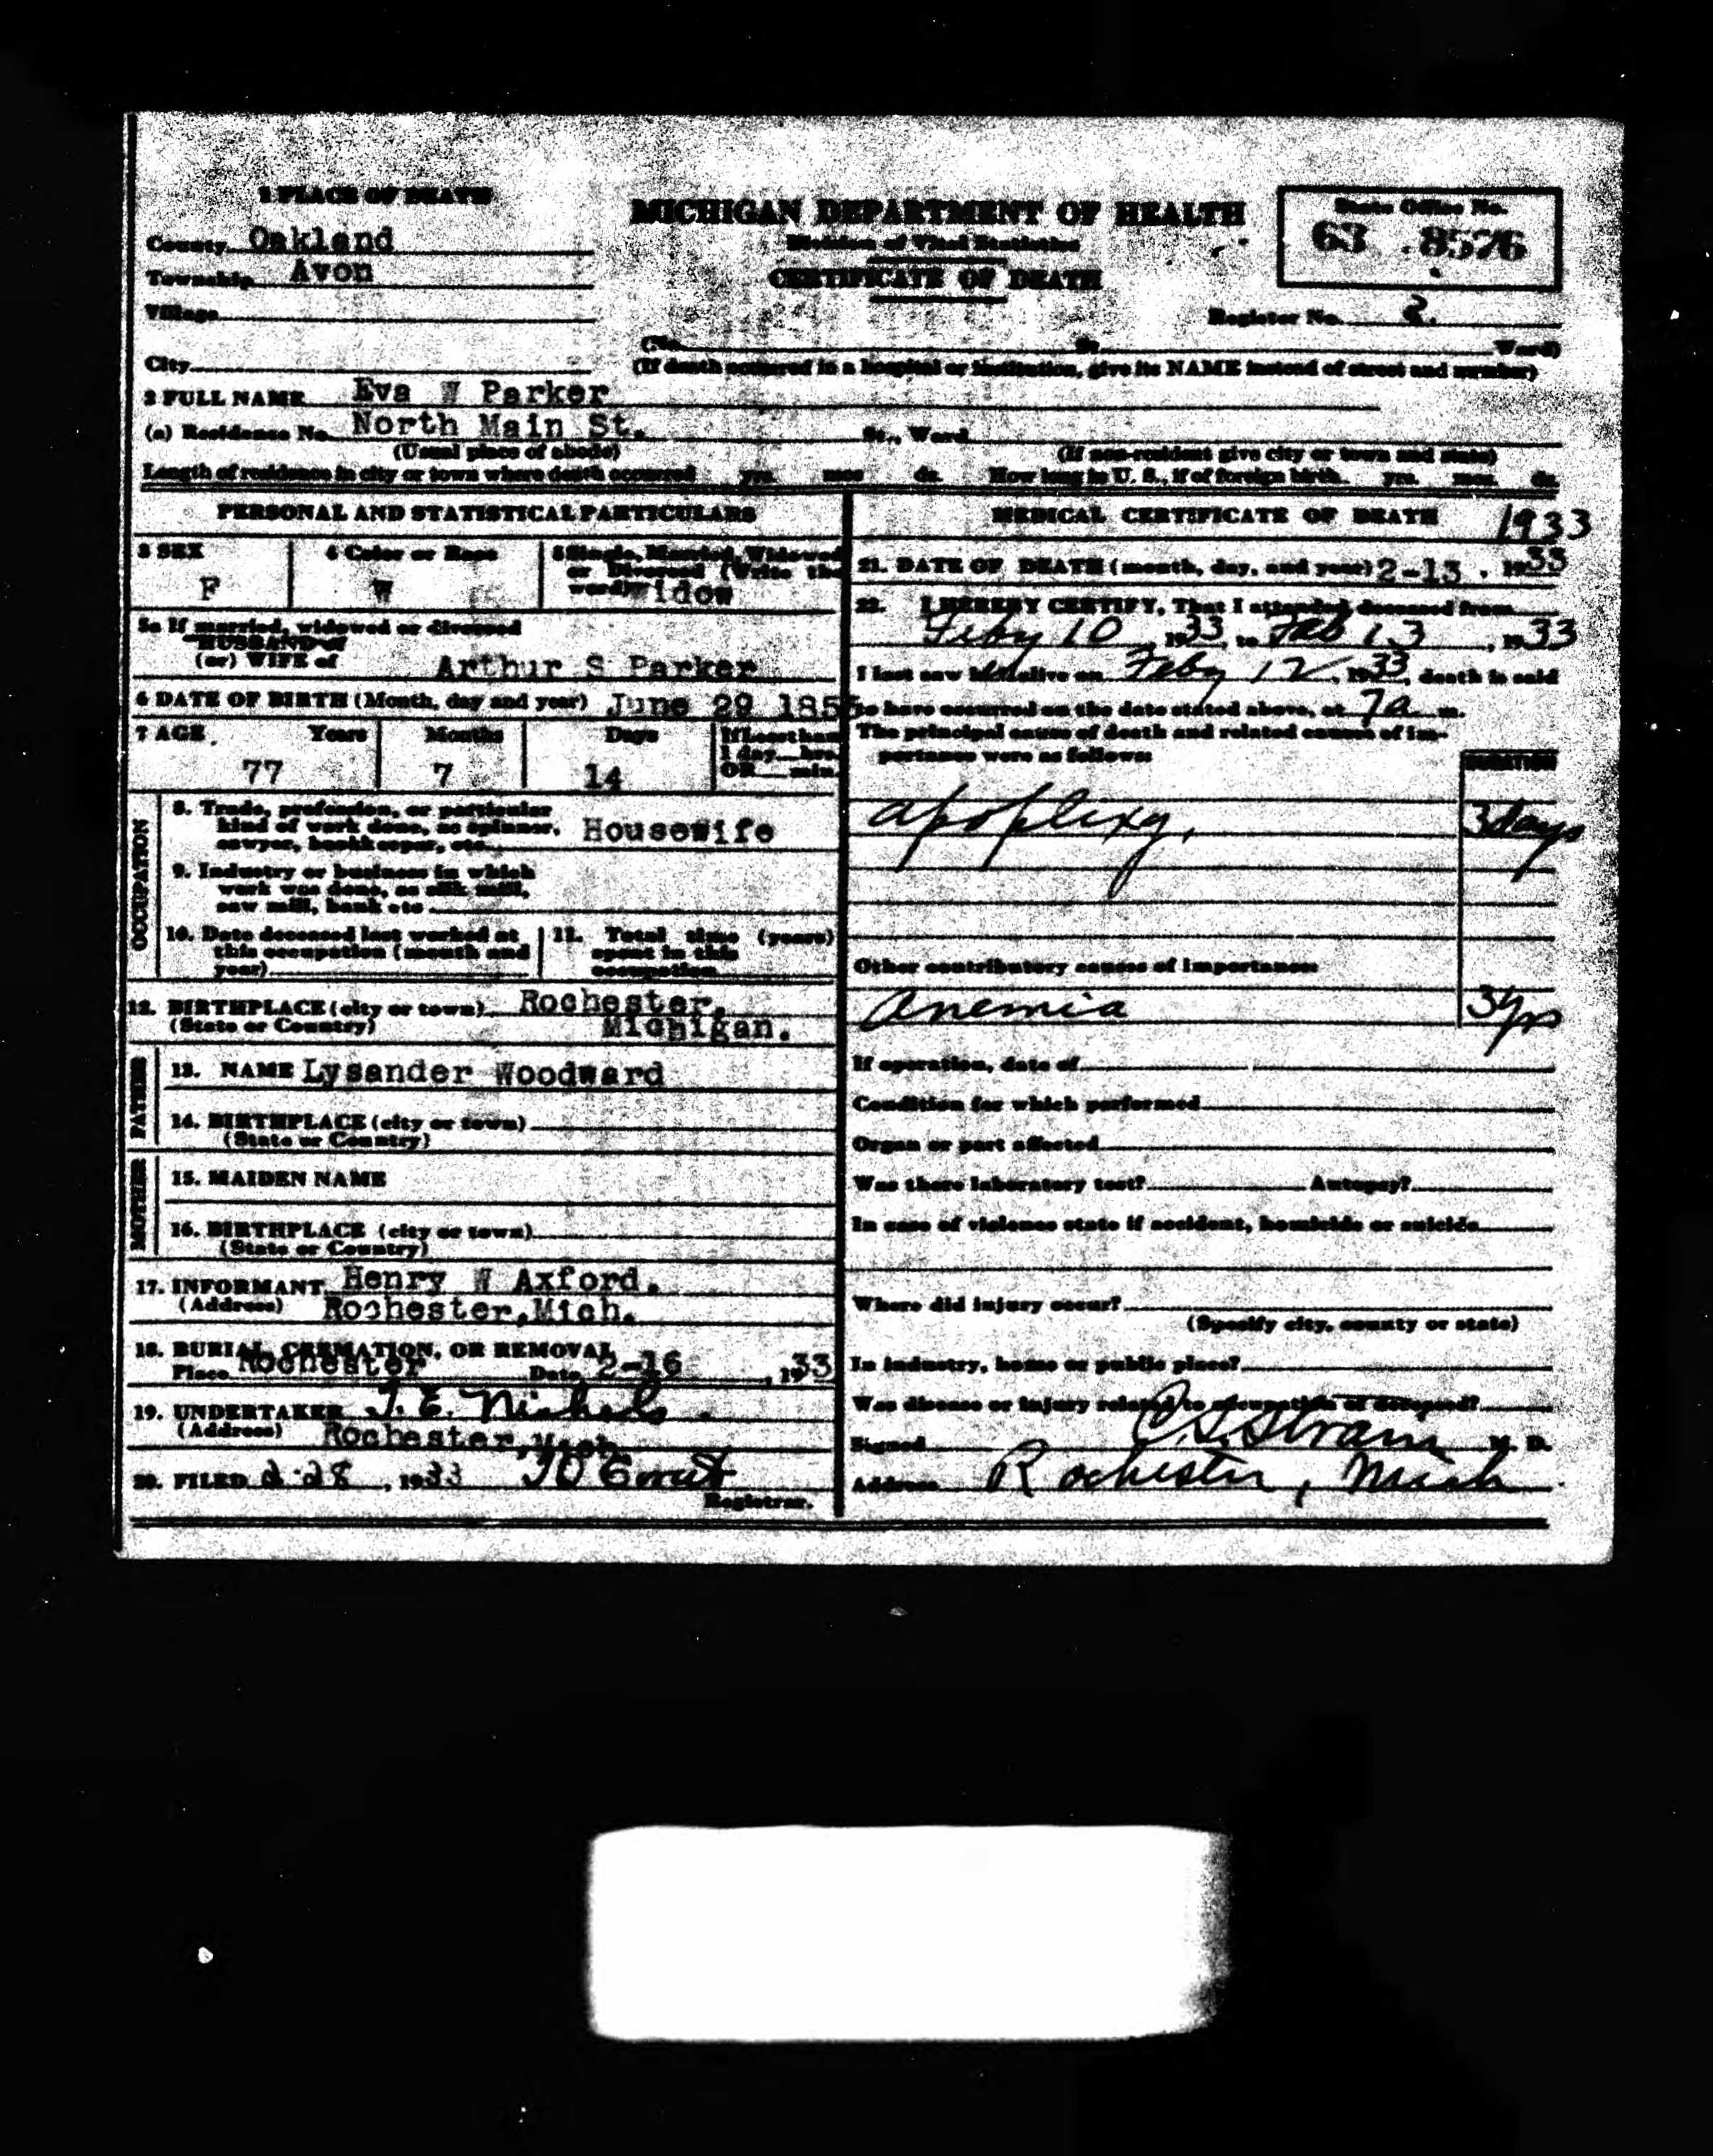 1 PLACE OF DEATH
County Oakland
Township Avon
Village
City
MICHIGAN DEPARTMENT OF HEALTH
Division of Vital Statistics
CERTIFICATE OF DEATH
State Office No.
63 8576
Register No. 2.
(No. St. Ward)
(If death occurred in a hospital or institution, give its NAME instead of street and number)
2 FULL NAME Eva W Parker
(a) Residence No. North Main St. St., Ward
(Usual place of abode) (If non-resident give city or town and state)
Length of residence in city or town where death occurred yrs. mos ds. How long in U. S., if of foreign birth. yrs. mos. ds.
PERSONAL AND STATISTICAL PARTICULARS
3 SEX
F
4 Color or Race
W
5 Single, Married, Widowed
or Divorced (Write the
word) Widow
5a If married, widowed or divorced
HUSBAND of
(or) WIFE of Arthur S Parker
6 DATE OF BIRTH (Month, day and year) June 29 1855
7 AGE Years Months Days If Less than
1 day hrs.
OR min.
77 7 14
OCCUPATION
8. Trade, profession, or particular
kind of work done, as spinner,
sawyer, bookkeeper, etc. Housewife
9. Industry or business in which
work was done, as silk mill,
saw mill, bank etc
10. Date deceased last worked at
this occupation (month and
year)
11. Total time (years)
spent in this
occupation
12. BIRTHPLACE (city or town) Rochester,
(State or Country) Michigan.
FATHER
13. NAME Lysander Woodward
14. BIRTHPLACE (city or town)
(State or Country)
MOTHER
15. MAIDEN NAME
16. BIRTHPLACE (city or town)
(State or Country)
17. INFORMANT Henry W Axford.
(Address) Rochester, Mich.
18. BURIAL, CREMATION, OR REMOVAL
Place Rochester Date 2-16, 1933
19. UNDERTAKER T. E. Nichols.
(Address) Rochester, Mich
20. FILED 2-28, 1933
Registrar.
MEDICAL CERTIFICATE OF DEATH 1933
21. DATE OF DEATH (month, day, and year) 2-13, 1933
22. I HEREBY CERTIFY, That I attended deceased from
Feby 10, 1933, to Feb 13, 1933
I last saw h alive on Feby 12, 1933, death is said
to have occurred on the date stated above, at 7a m.
The principal cause of death and related causes of im-
portance were as follows:
DURATION
apoplexy, 3 days
Other contributory causes of importance:
Anemia 3 yrs
If operation, date of
Condition for which performed
Organ or part affected
Was there laboratory test? Autopsy?
In case of violence state if accident, homicide or suicide
Where did injury occur?
(Specify city, county or state)
In industry, home or public place?
Was disease or injury related to occupation of deceased?
Signed M. D.
Address Rochester, Mich